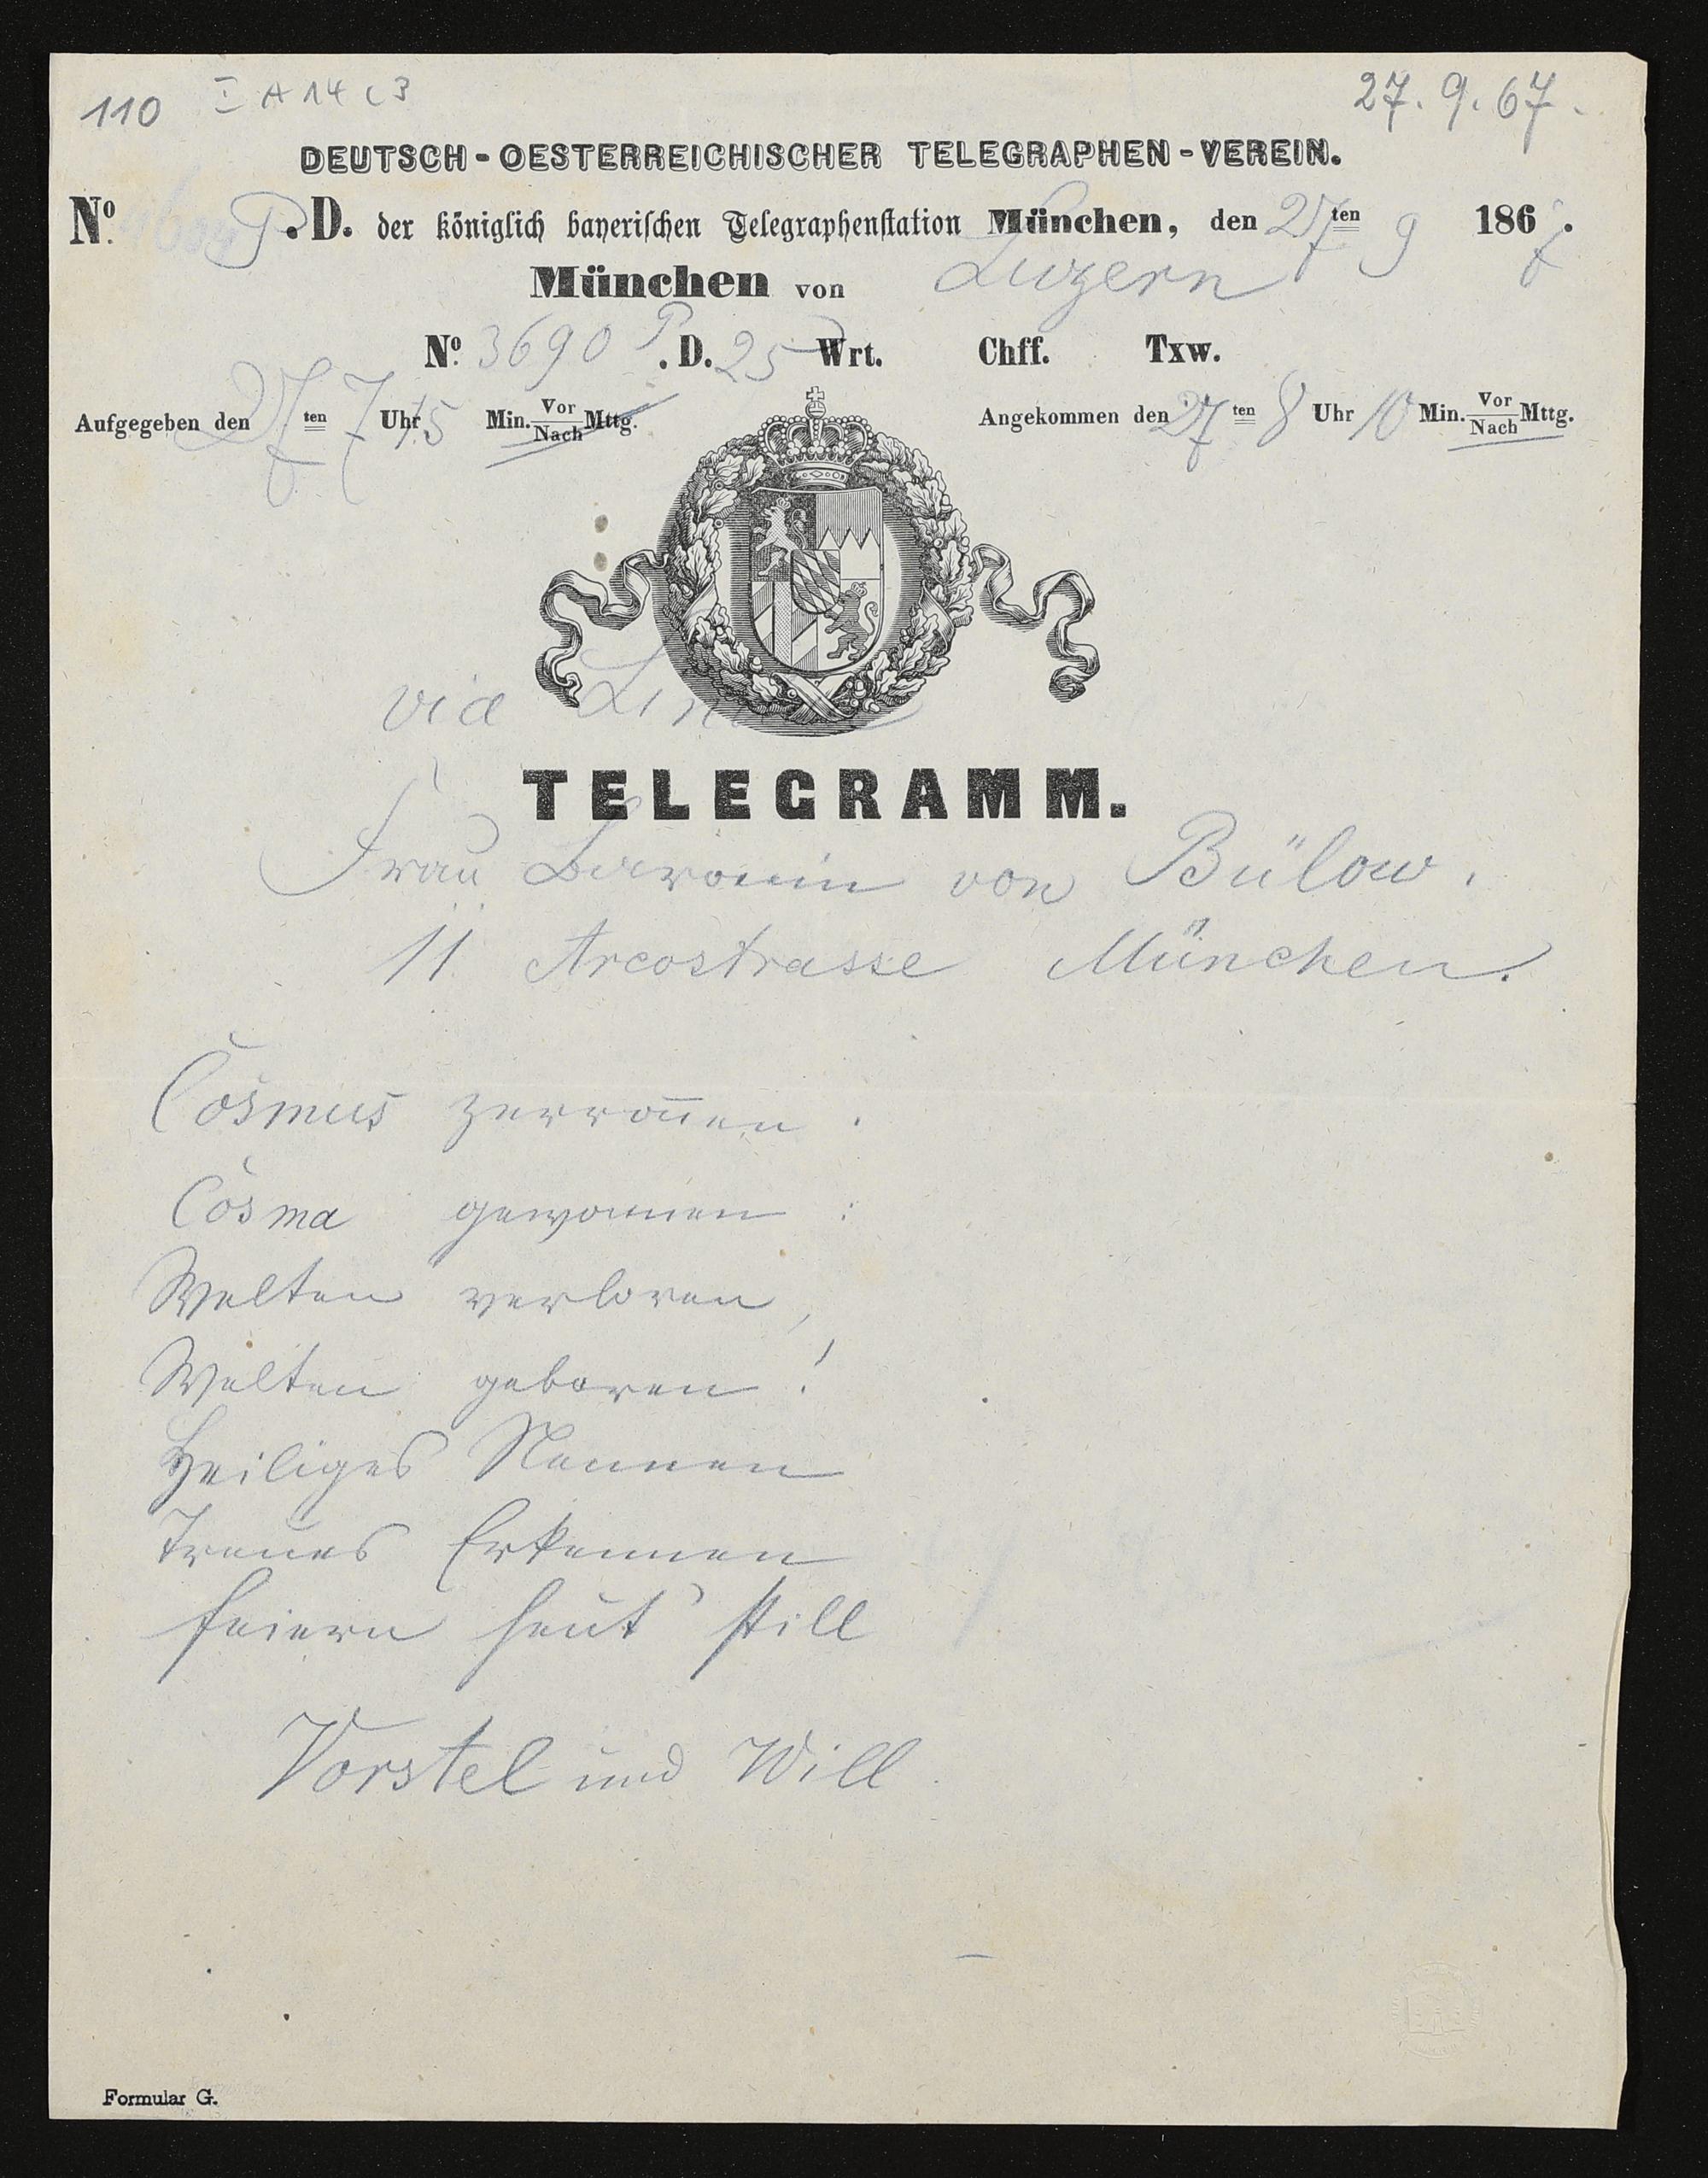 110 I A 14 c 3
27.9.67.
DEUTSCH-OESTERREICHISCHER TELEGRAPHEN-VEREIN.
No. P.D. der königlich bayerischen Telegraphenstation München, den 27ten 9 1867.
München von Luzern
No. 3690 P.D. 25 Wrt. Chff. Txw.
Aufgegeben den 27ten 7 Uhr 15 Min. Vor/Nach Mttg. Angekommen den 27ten 8 Uhr 10 Min. Vor/Nach Mttg.
via
TELEGRAMM.
Frau Baronin von Bülow.
11 Arcostrasse München.
Cosmus zerron̄en.
Cosma gewonnen:
Welten verloren,
Welten geboren!
Heiliges Nennen
Treues Erkennen
feiern heut' still
Vorstel und Will
Formular G.